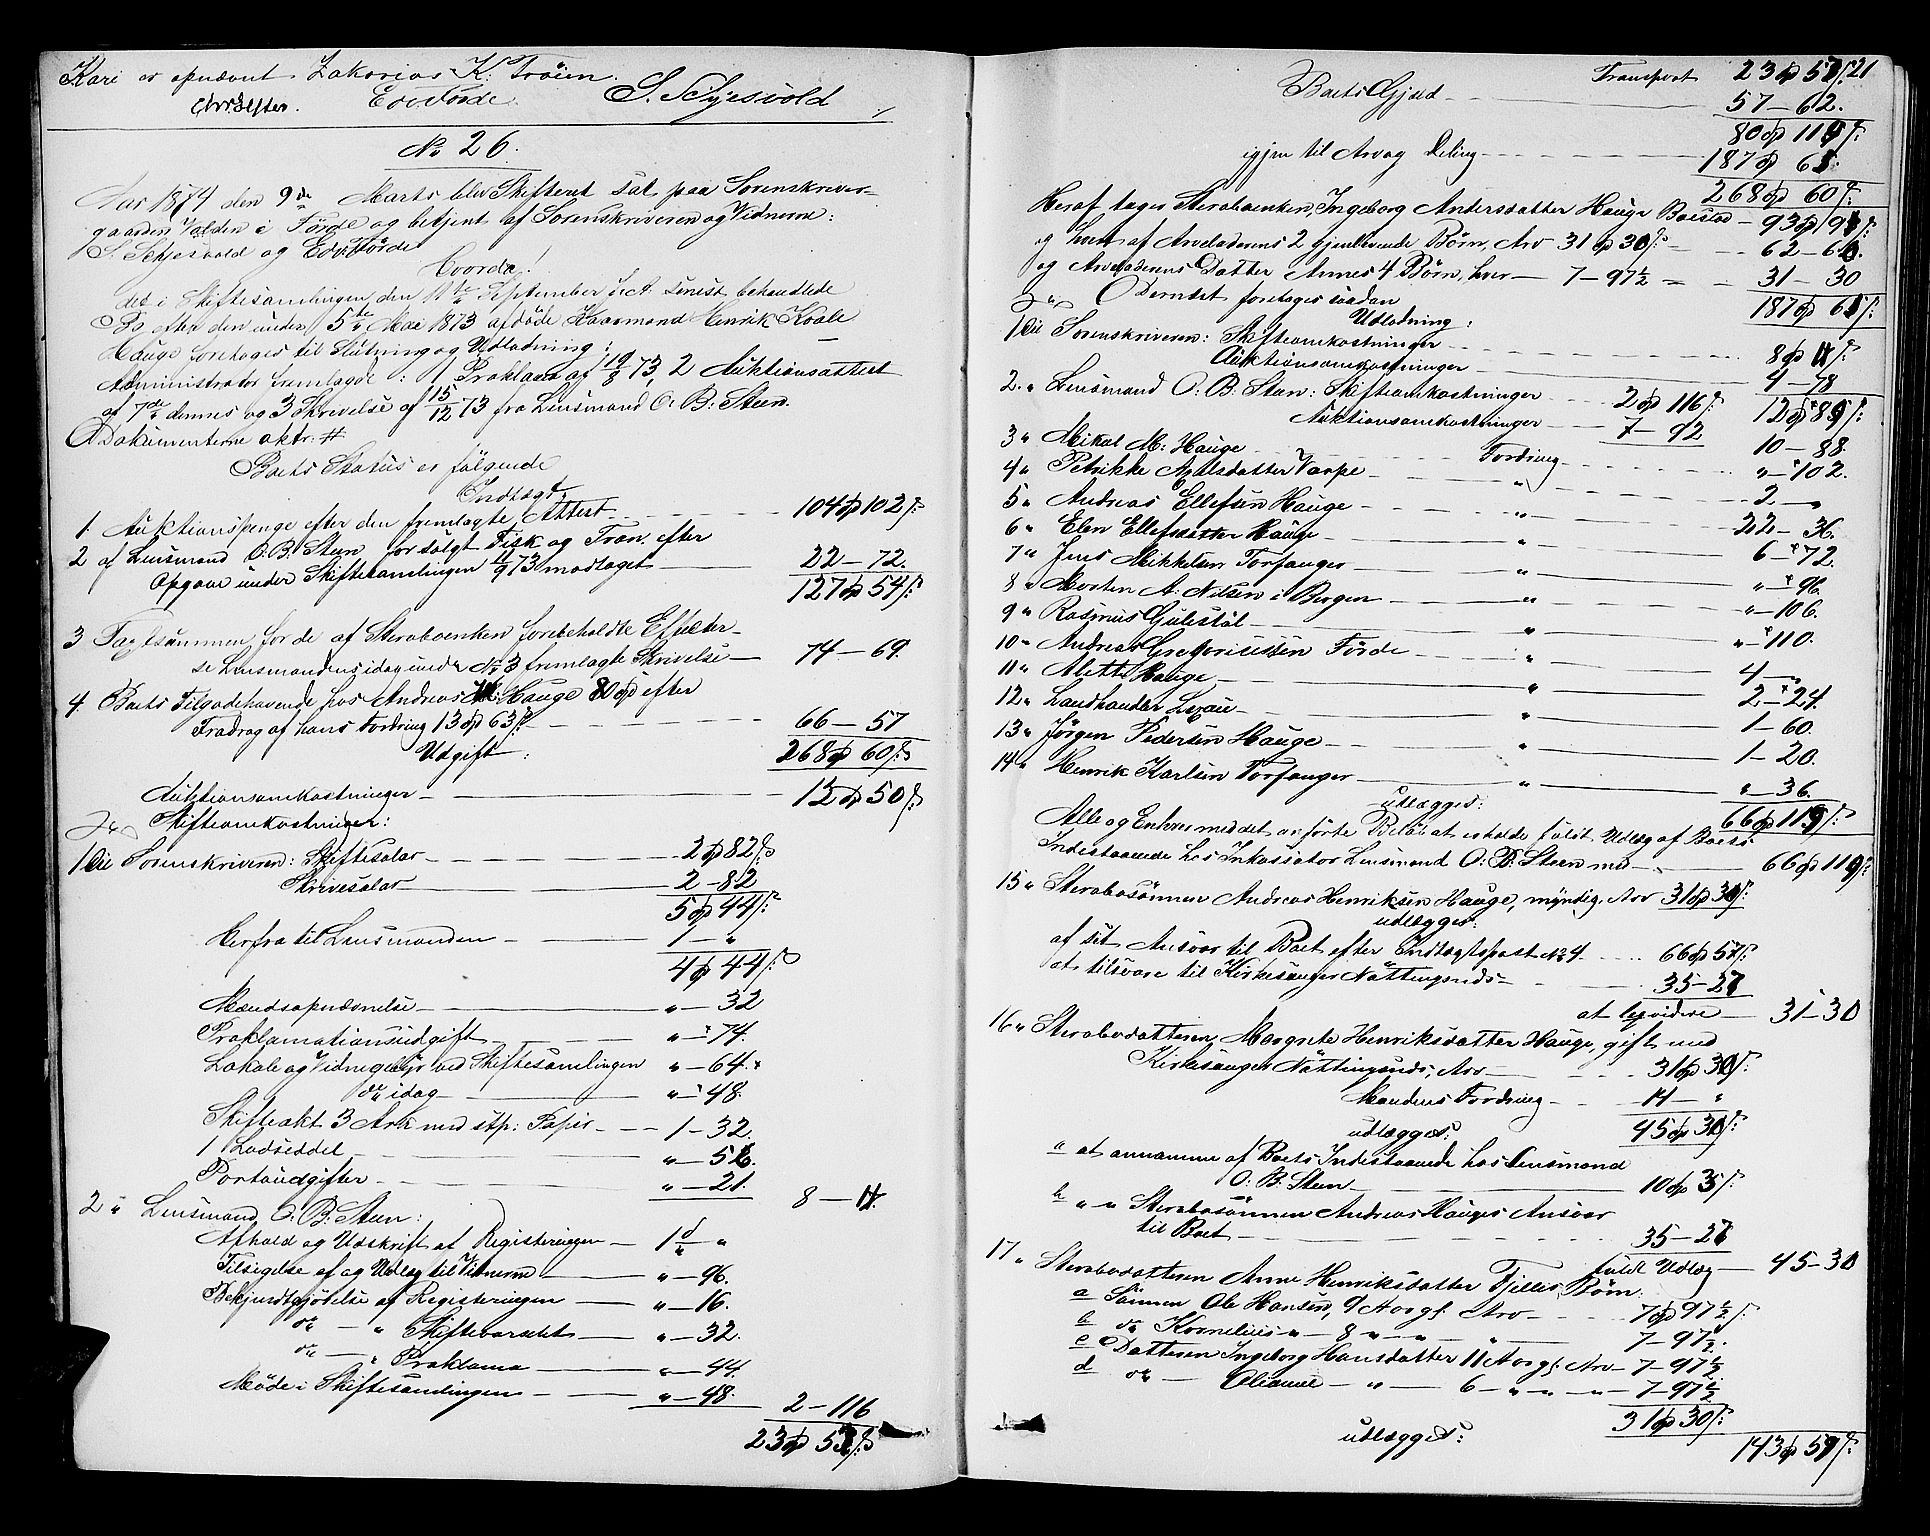 Kari er opnævnt Zakarias K: Trøen.
Chr: Esten. Edv Førde S. Schjesvold
No 26.
Aar 1874 den 9de Marts blev Skifteret sat paa Sorenskriver-
gaarden Valden i Førde og betjent af Sorenskriveren og Vidnerne:
S. Schjesvold og Edv Førde
Hvorda!
det i Skiftesamlingen den 11te September f: A. senest behandlede
Bo efter den under 5te Mai 1873 afdøde Kaarmand Henrik
Hauge foretages til Slutning og Udlodning:
Administrator fremlagde: 1 Proklama af 19/8 73, 2 Auktionsattest
af 7de dennes og 3 Skrivelse af 15/12 73 fra Lensmand O: B: Steen.
Dokumenterne aktr: #
Boets Status er følgende
Indtægt
1. Auktionspenge efter den fremlagte Attest - 104 102 ß:
2 af Lensmand O: B: Steen for solgt Fisk og Tran efter
Opgave under Skiftesamlingen 11/9 73 modtaget 22 - 72.
127 54 ß:
3 Taxtsummen for de af Stervboenken forebeholdte Effekter
se Lensmandens idag under No 3 fremlagte Skrivelse 74 - 69.
4. Boets Tilgodehavende hos Andreas Hauge 80 efter
Fradrag af hans Fordring 13 63 ß: 66 - 57
Udgift: 268 60 ß
Auktionsomkostninger 12 50 ß:
Skifteomkostninger:
1 til Sorenskriveren: Skiftesalar 2 82 ß
Skrivesalar 2 - 82
5 44 ß:
Herfra til Lensmanden 1 - "
4 44 ß
Mændsopnævnelse " - 32
Proklamationsudgift " - 74.
Lokale og Vidnegebyr ved Skiftesamlingen " - 64.
do idag " - 48.
Skifteakt 3 Ark med stp: Papir 1 - 32.
1 Lodseddel " - 56.
Portoudgifter " - 21. 8 - 11.
2 " Lensmand O: B: Steen:
Afhold og Udskrift af Registeringen 1 "
Tilsigelse af og Udlæg til Vidnerne " - 96.
Bekjendtgjørelse af Registeringen " - 16.
do - " Skiftevarselet " - 32.
do - " Proklama " - 44.
Møde i Skiftesamlingen " - 48. 2 - 116
23 57 ß
Transport 23 57 ß 21
Boets Gjæld 57 - 62.
80 119 ß:
igjen til Arv og Deling 187 61:
268 60 ß:
Heraf tager Stervboenken, Ingeborg Andersdatter Hauge Boeslod 93 91 ß:
og hver af Arveladerens 2 gjenlevende Børn, Arv 31 30 ß: 62 - 60.
og Arveladerens Datter Annes 4 Børn, hver 7 - 97 1/2 = 31 - 30
Dernæst foretages saadan 187 61 ß:
Udlodning:
1 til Sorenskriveren: Skifteomkostninger 8 11 ß:
Auktionsomkostninger 4 - 78
2. " Lensmand O: B: Steen: Skifteomkostninger 2 116 ß: 12 89 ß:
Auktionsomkostninger 7 - 92 10 - 88.
3 " Mikal M: Hauge Fordring " - 102.
4 " Petrikke Axelsdatter Varpe " 2 - "
5 " Andreas Ellefsen Hauge " 22 - 36.
6 " Elen Ellefsdatter Hauge " 6 - 72.
7 " Jens Mikkelsen Torfanger " " - 96.
8 " Morten A: Nilsen i Bergen " " - 106.
9 " Rasmus Gulestøl " " - 110.
10 " Andreas Gregoriussen Førde " 4 - "
11 " Alette Hauge " 2 - 24.
12 " Landhandler " 1 - 60.
13 " Jørgen Pedersen Hauge " 1 - 20.
14 " Henrik Karlsen Torfanger " " - 36.
udlægges: 66 119 ß:
Alle og Enhver med det anførte Beløb at erholde fuldt Udlæg af Boets
Indestaaende hos Inkassator Lensmand O: B: Steen med 66 119 ß:
15 " Stervbosønnen Andreas Henriksen Hauge, myndig, Arv 31 30 ß:
udlægges:
af sit Ansvar til Boet efter Indtægtspost No 4 66 57 ß:
at tilsvare til Kirkesanger Nøttingsnds 35 - 27
at liqvidere 31 - 30
16 " Stervbodatteren Margrete Henriksdatter Hauge, gift med
Kirkesanger Nøttingsnds, Arv 31 30 ß:
Mandens Fordring 14 - "
udlægges: 45 30 ß:
a at annamme af Boets Indestaaende hos Lensmand
O: B: Steen 10 3 ß:
b " " Stervbosønnen Andreas Hauges Ansvar
til Boet 35 - 27
fuldt Udlæg 45 - 30
17 " Stervbodatteren Anne Henriksdatter Børn:
a Sønnen Ole Hansen, 9 Aar gl: Arv 7 97 1/2 ß:
b do Kornelius " - 8 " - " - " 7 - 97 1/2.
c Datteren Ingeborg Hansdatter 11 Aar gl: Arv 7 - 97 1/2
d do - - " - 6 - " - " - " 7 - 97 1/2
31 30 ß:
udlægges: 143 59 ß: